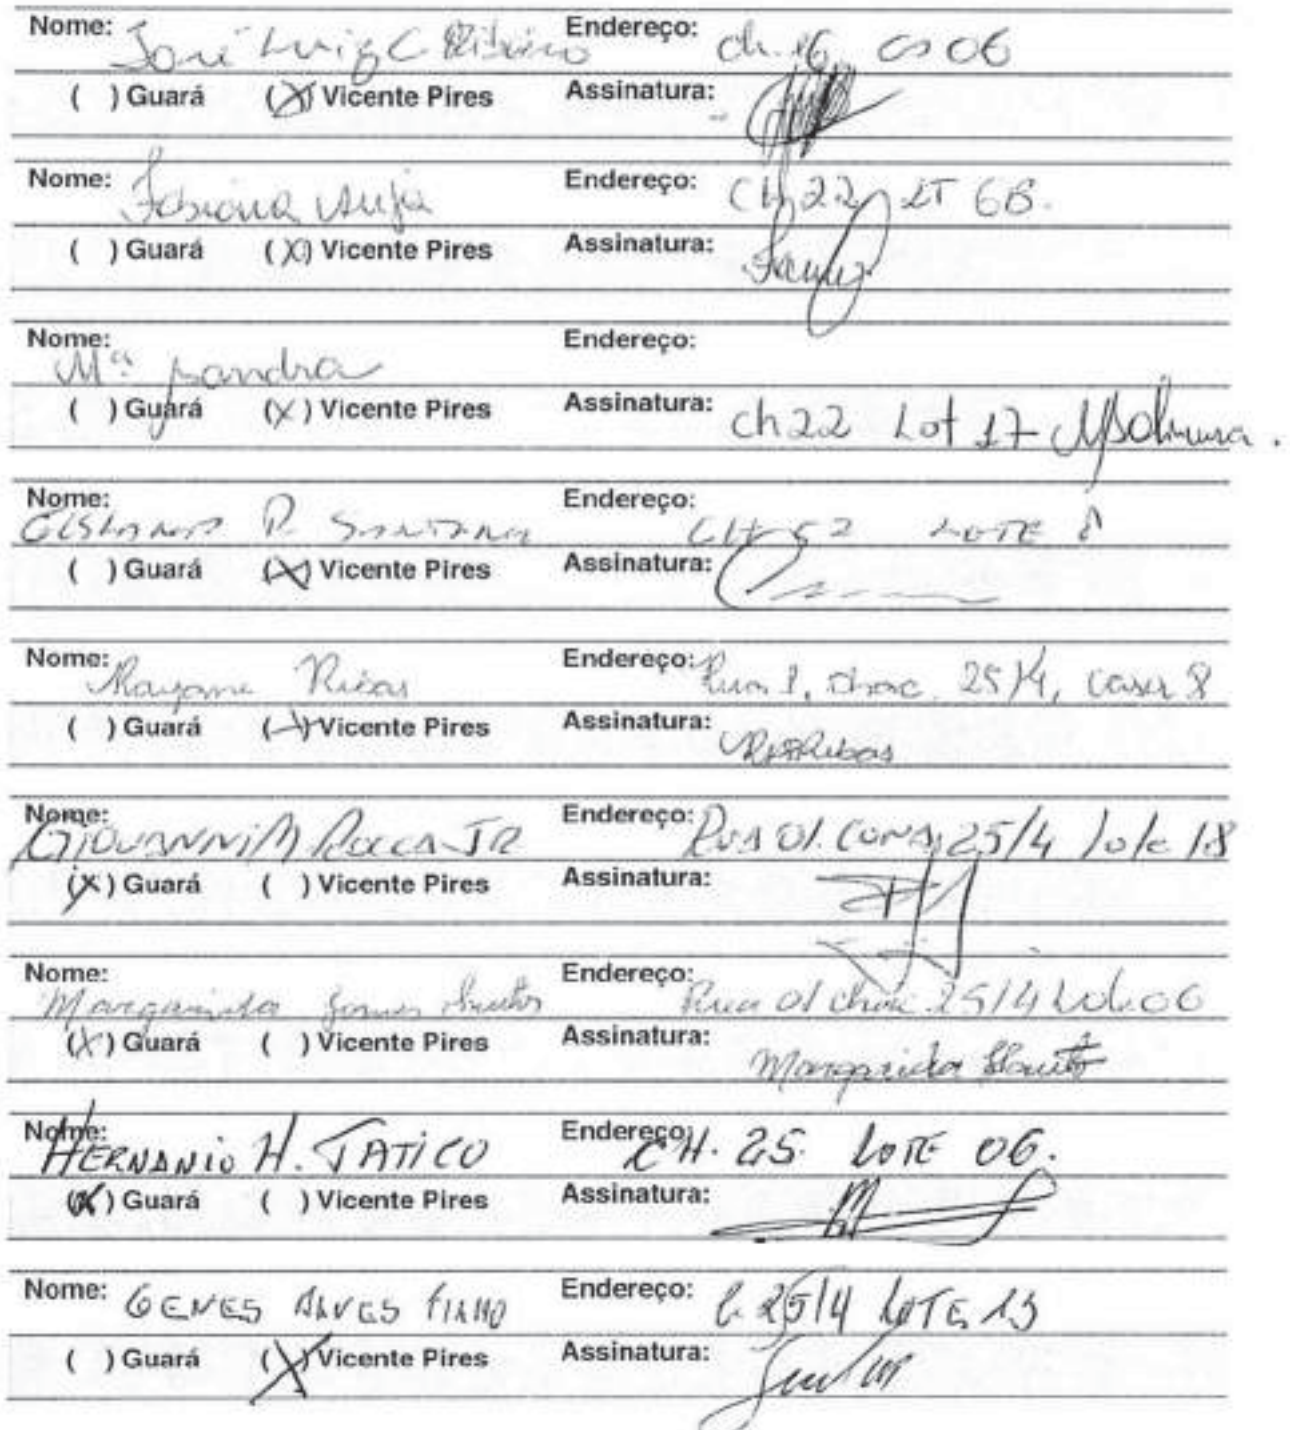 Nome: José Luiz C Ribeiro Endereço: ch. 16, cs 06
( ) Guará (X) Vicente Pires Assinatura:
Nome: Fabiana Endereço: CH 22 LT 6B.
( ) Guará (X) Vicente Pires Assinatura:
Nome: Mª Sandra Endereço:
( ) Guará (X) Vicente Pires Assinatura: ch 22 Lot 17
Nome: P. SANTANA Endereço: CH 52 LOTE 8
( ) Guará (X) Vicente Pires Assinatura:
Nome: Rayane Ribas Endereço: Rua 1, chac. 25/4, casa 8
( ) Guará (X) Vicente Pires Assinatura:
Nome: GIOVANNI M ROCCA JR Endereço: RUA 01. 25/4 lote 18
(X) Guará ( ) Vicente Pires Assinatura:
Nome: Margarida Gomes Endereço: Rua 01 chac. 25/4 Lote 06
(X) Guará ( ) Vicente Pires Assinatura: Margarida
Nome: HERNANIO H. TATICO Endereço: CH. 25. LOTE 06.
(X) Guará ( ) Vicente Pires Assinatura:
Nome: GENES ALVES FILHO Endereço: 25/4 LOTE 13
( ) Guará (X) Vicente Pires Assinatura: